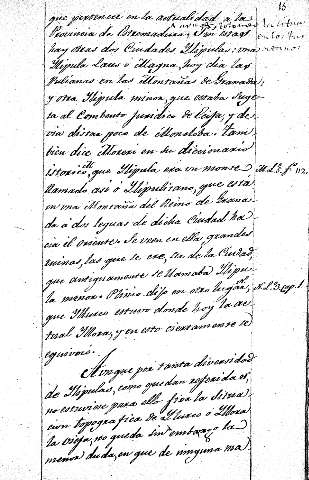 15
que pertenece en la actualidad a la
Provincia de Estremadura. Sin estas
hay otras dos Ciudades Ylipulas: una
Ylipula Laus ó Magna, hoy dia las
Julianas en las Montañas de Granada;
y otra Ylipula minor, que estaba suge
ta al Combento Juridico de Ecija, y de
via distar poco de Monclova. Tam
bien dice Moreri en su diccionario
istorico, que Ylipula era un monte
llamado asi ó Ylipulitano, que esta
en una Montaña del Reino de Grana
da á dos leguas de dicha Ciudad ha
cia el oriente: se veen en ella grandes
ruinas, las que se cre, ser de la Ciudad
que antiguamente se llamaba Ylipu
la menor: Plinio dijo en otro lugar
que Ylurco estuvo donde hoy la ac
tual Yllora, y en esto ciertamente se
equivocó.
Aunque por tanta diversidad
de Ylipulas, como quedan referidas,
no estuviese para ello fixa la situa
cion topografica de Ylurco ó Yllora
la vieja, no queda sin embargo la
menor duda, en que de ninguna ma